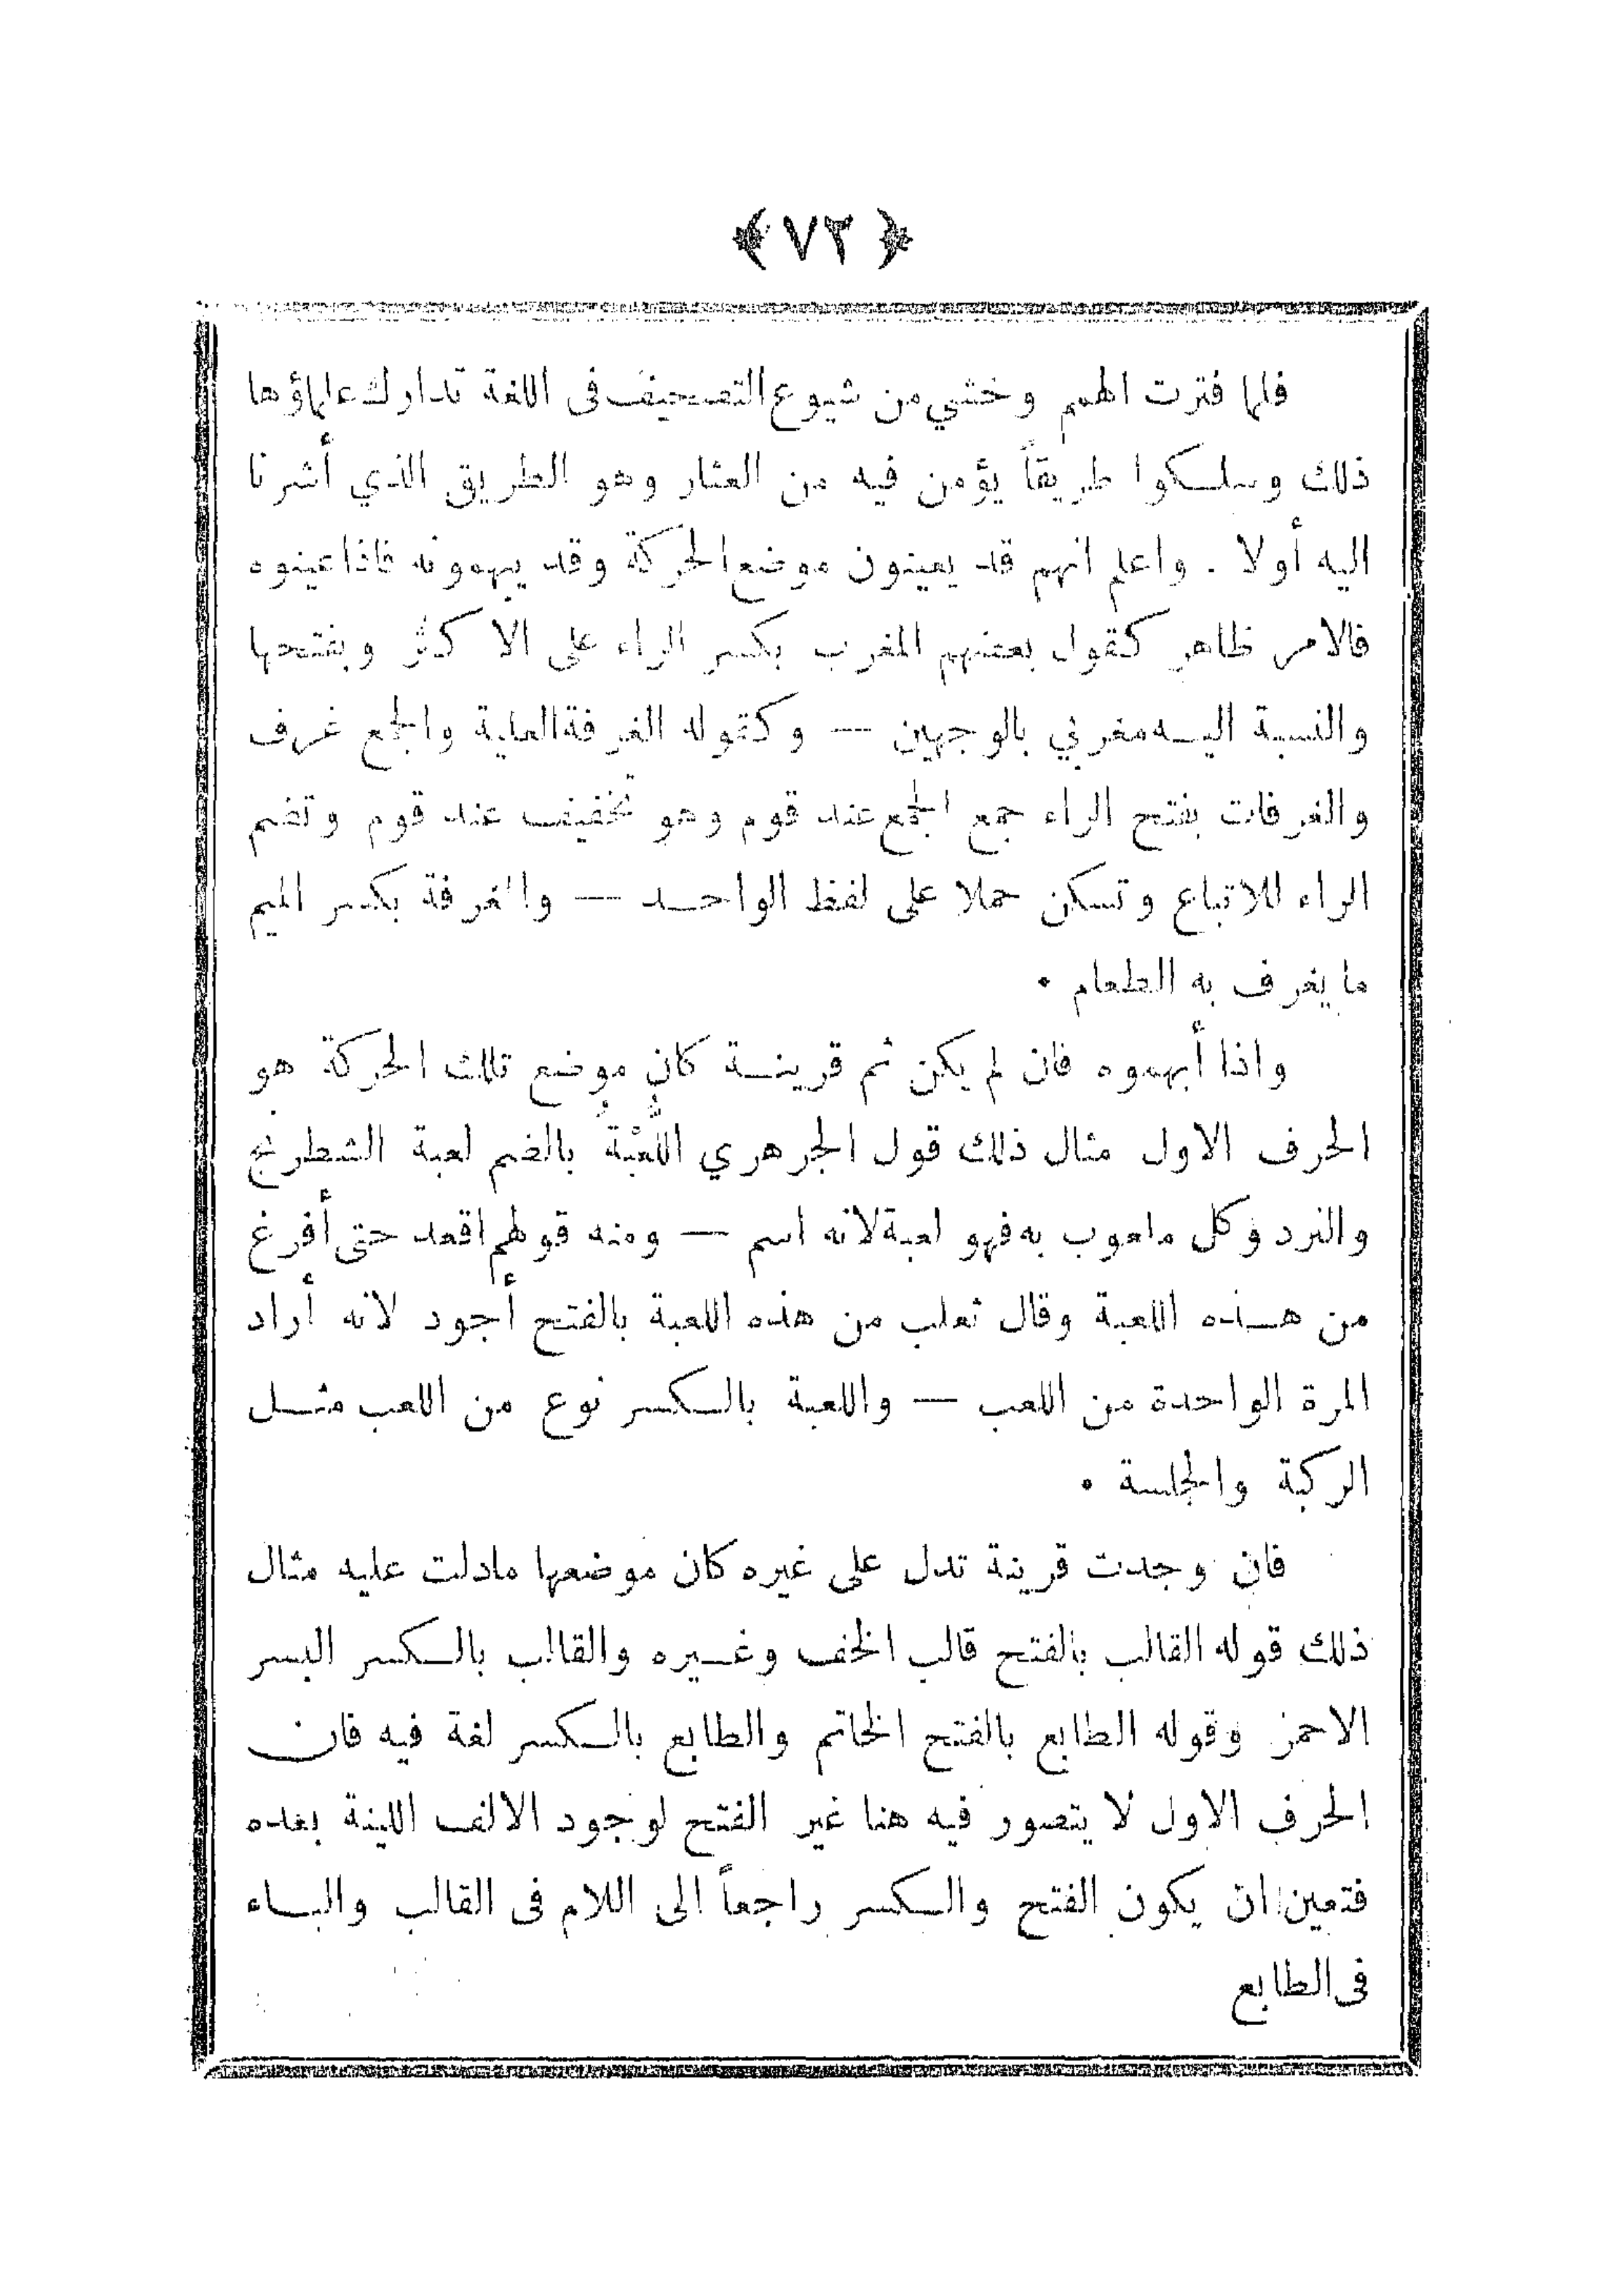 ﴿ ٧٢ ﴾
فلما فترت الهمم وخشي من شيوع التصحيف فى اللغة تدارك علماؤها
ذلك وسلكوا طريقاً يؤمن فيه من العثار وهو الطريق الذي أشرنا
اليه أولا . واعلم انهم قد يعينون موضع الحركة وقد يبهمونه فاذا عينوه
فالامر ظاهر كقول بعضهم المغرب بكسر الراء على الاكثر وبفتحها
والنسبة اليه مغربي بالوجهين — وكقوله الغرفة العلية والجمع غرف
والغرفات بفتح الراء جمع الجمع عند قوم وهو تخفيف عند قوم وتضم
الراء للاتباع وتسكن حملا على لفظ الواحد — والمغرفة بكسر الميم
ما يغرف به الطعام .
واذا أبهموه فان لم يكن ثم قرينة كان موضع تلك الحركة هو
الحرف الاول مثال ذلك قول الجرهري اللُّعْبَةُ بالضم لعبة الشطرنج
والنرد وكل ملعوب به فهو لعبة لانه اسم — ومنه قولهم اقعد حتى أفرغ
من هذه اللعبة وقال ثعلب من هذه اللعبة بالفتح أجود لانه أراد
المرة الواحدة من اللعب — واللعبة بالكسر نوع من اللعب مثل
الركبة والجلسة .
فان وجدت قرينة تدل على غيره كان موضعها مادلت عليه مثال
ذلك قوله القالب بالفتح قالب الخف وغيره والقالب بالكسر البسر
الاحمر وقوله الطابع بالفتح الخاتم والطابع بالكسر لغة فيه فان
الحرف الاول لا يتصور فيه هنا غير الفتح لوجود الالف اللينة بعده
فتعين ان يكون الفتح والكسر راجعاً الى اللام فى القالب والباء
فى الطابع